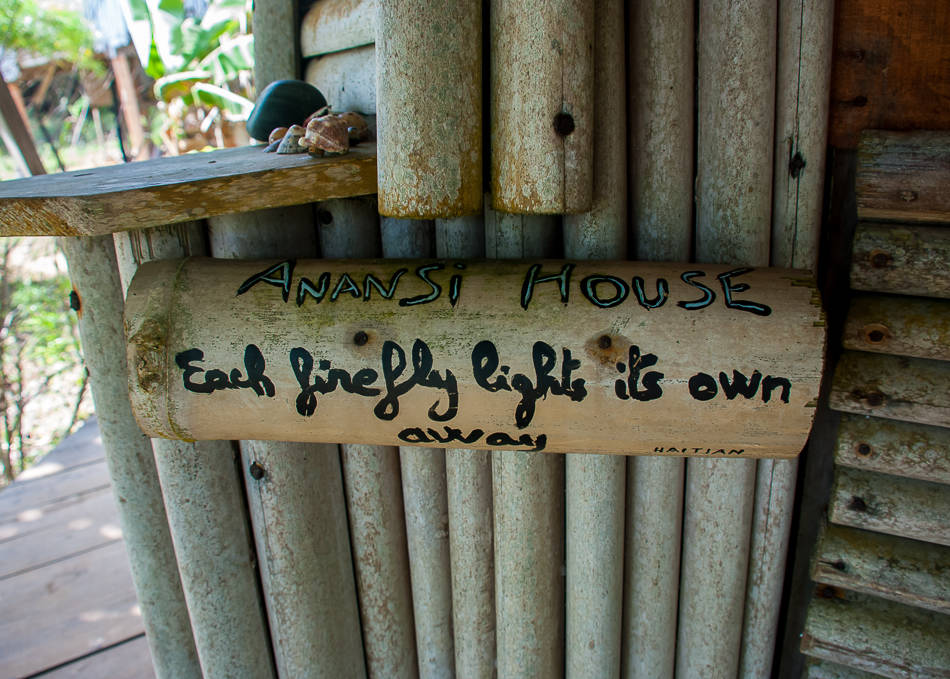 ANANSi HOUSE
Each firefly lights it's own
away
HAITIAN